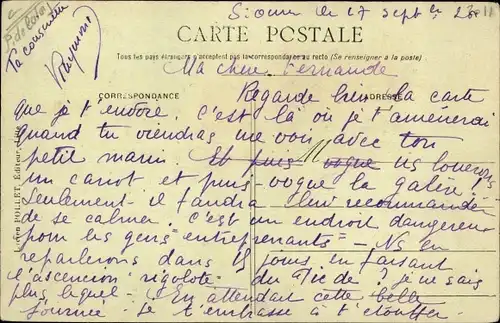 Ta cousine
Raymonde
le 17 Sept
CARTE POSTALE
Tous les pays étrangers n'acceptent pas la correspondance au recto (Se renseigner à la poste)
Ma chère Fernande
CORRESPONDANCE
ADRESSE
Regarde bien la carte
que je t'envoie. C'est là où je t'amènerai
quand tu viendras me voir avec ton
petit mari Et puis vogue ns louerons
un canot et puis vogue la galère !
Seulement il faudra lui recommander
de se calmer. C'est un endroit dangereux
pour les gens "entreprenants" - Ns en
reparlerons dans 15 jours en faisant
l'ascencion "rigolote" du de ? je ne sais
plus lequel - En attendant cette belle
journée je t'embrasse à t'étouffer
POLLET, Éditeur